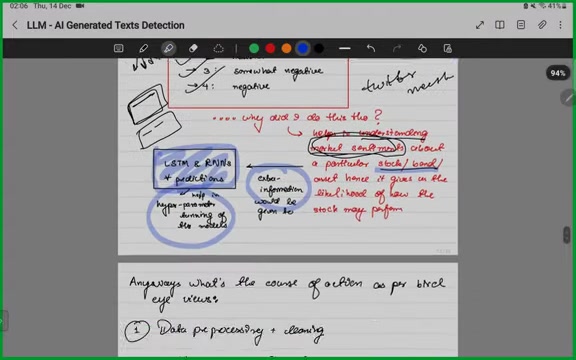 02:06 Thu, 14 Dec
41%
LLM - AI Generated Texts Detection
94%
3: somewhat negative
4: negative
.... why did I do this tho?
helps in understanding
market sentiments about
a particular stock/bond/
asset hence it gives in the
likelihood of how the
stock may perform
LSTM & RNNs
+ predictions
extra
information
would be
given to
help in
hyper-parameter
tunning of
the models
Anyways what's the course of action as per bird
eye views:
1 Data preprocessing + cleaning